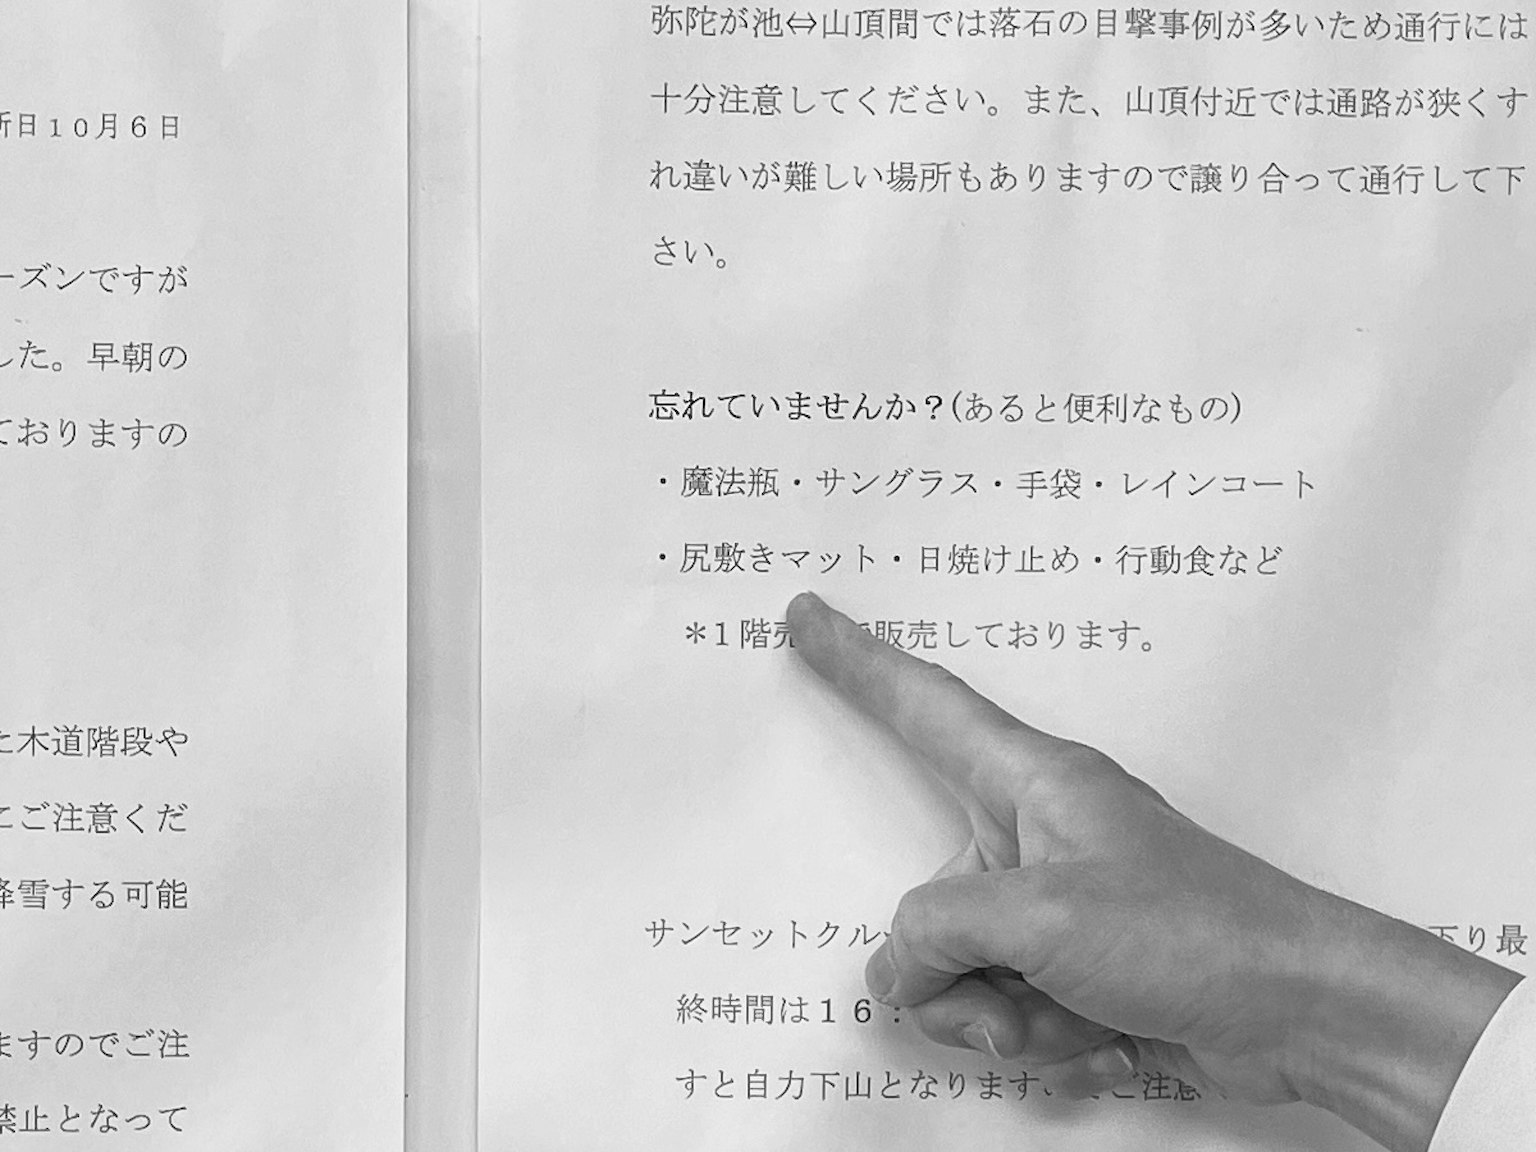 新日１０月６日
ーズンですが
した。早朝の
ておりますの
た木道階段や
にご注意くだ
降雪する可能
ますのでご注
禁止となって
弥陀が池⇔山頂間では落石の目撃事例が多いため通行には
十分注意してください。また、山頂付近では通路が狭くす
れ違いが難しい場所もありますので譲り合って通行して下
さい。
忘れていませんか？(あると便利なもの)
・魔法瓶・サングラス・手袋・レインコート
・尻敷きマット・日焼け止め・行動食など
＊１階売 で販売しております。
サンセットクル 下り最
終時間は１６：
すと自力下山となります。 でご注意